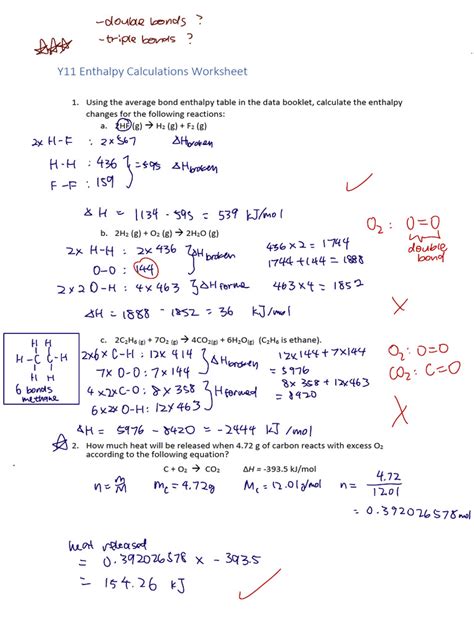 -double bonds ?
-triple bonds ?
Y11 Enthalpy Calculations Worksheet
1. Using the average bond enthalpy table in the data booklet, calculate the enthalpy
changes for the following reactions:
a. 2HF (g) → H2 (g) + F2 (g)
2x H-F : 2 x 567 ΔHbroken
H-H : 436 } = 595 ΔHbroken
F-F : 159
ΔH = 1134 - 595 = 539 kJ/mol
O2 : O=O
double
bond
b. 2H2 (g) + O2 (g) → 2H2O (g)
2x H-H : 2x 436 } ΔHbroken
O-O : 144
436 x 2 = 1744
1744 + 144 = 1888
2 x 2 O-H : 4 x 463 } ΔHforme
463 x 4 = 1852
ΔH = 1888 - 1852 = 36 kJ/mol
c. 2C2H6 (g) + 7O2 (g) → 4CO2(g) + 6H2O(g) (C2H6 is ethane).
H H
H-C C-H
H H
6 bonds
methane
2x6 x C-H : 12 x 414 } ΔHbroken
7x O-O : 7 x 144
12x144 + 7x144
= 5976
4 x 2 x C-O : 8 x 358 } Hformed
6x 2x O-H : 12x 463
8 x 358 + 12x463
= 8420
O2 : O=O
CO2 : C=O
ΔH = 5976 - 8420 = -2444 kJ /mol
2. How much heat will be released when 4.72 g of carbon reacts with excess O2
according to the following equation?
C + O2 → CO2 ΔH = -393.5 kJ/mol
n = m/M Mc = 4.72g Mc = 12.01g/mol n = 4.72
1201
= 0.392026578 mol
heat released
= 0.392026578 x -393.5
= 154.26 kJ